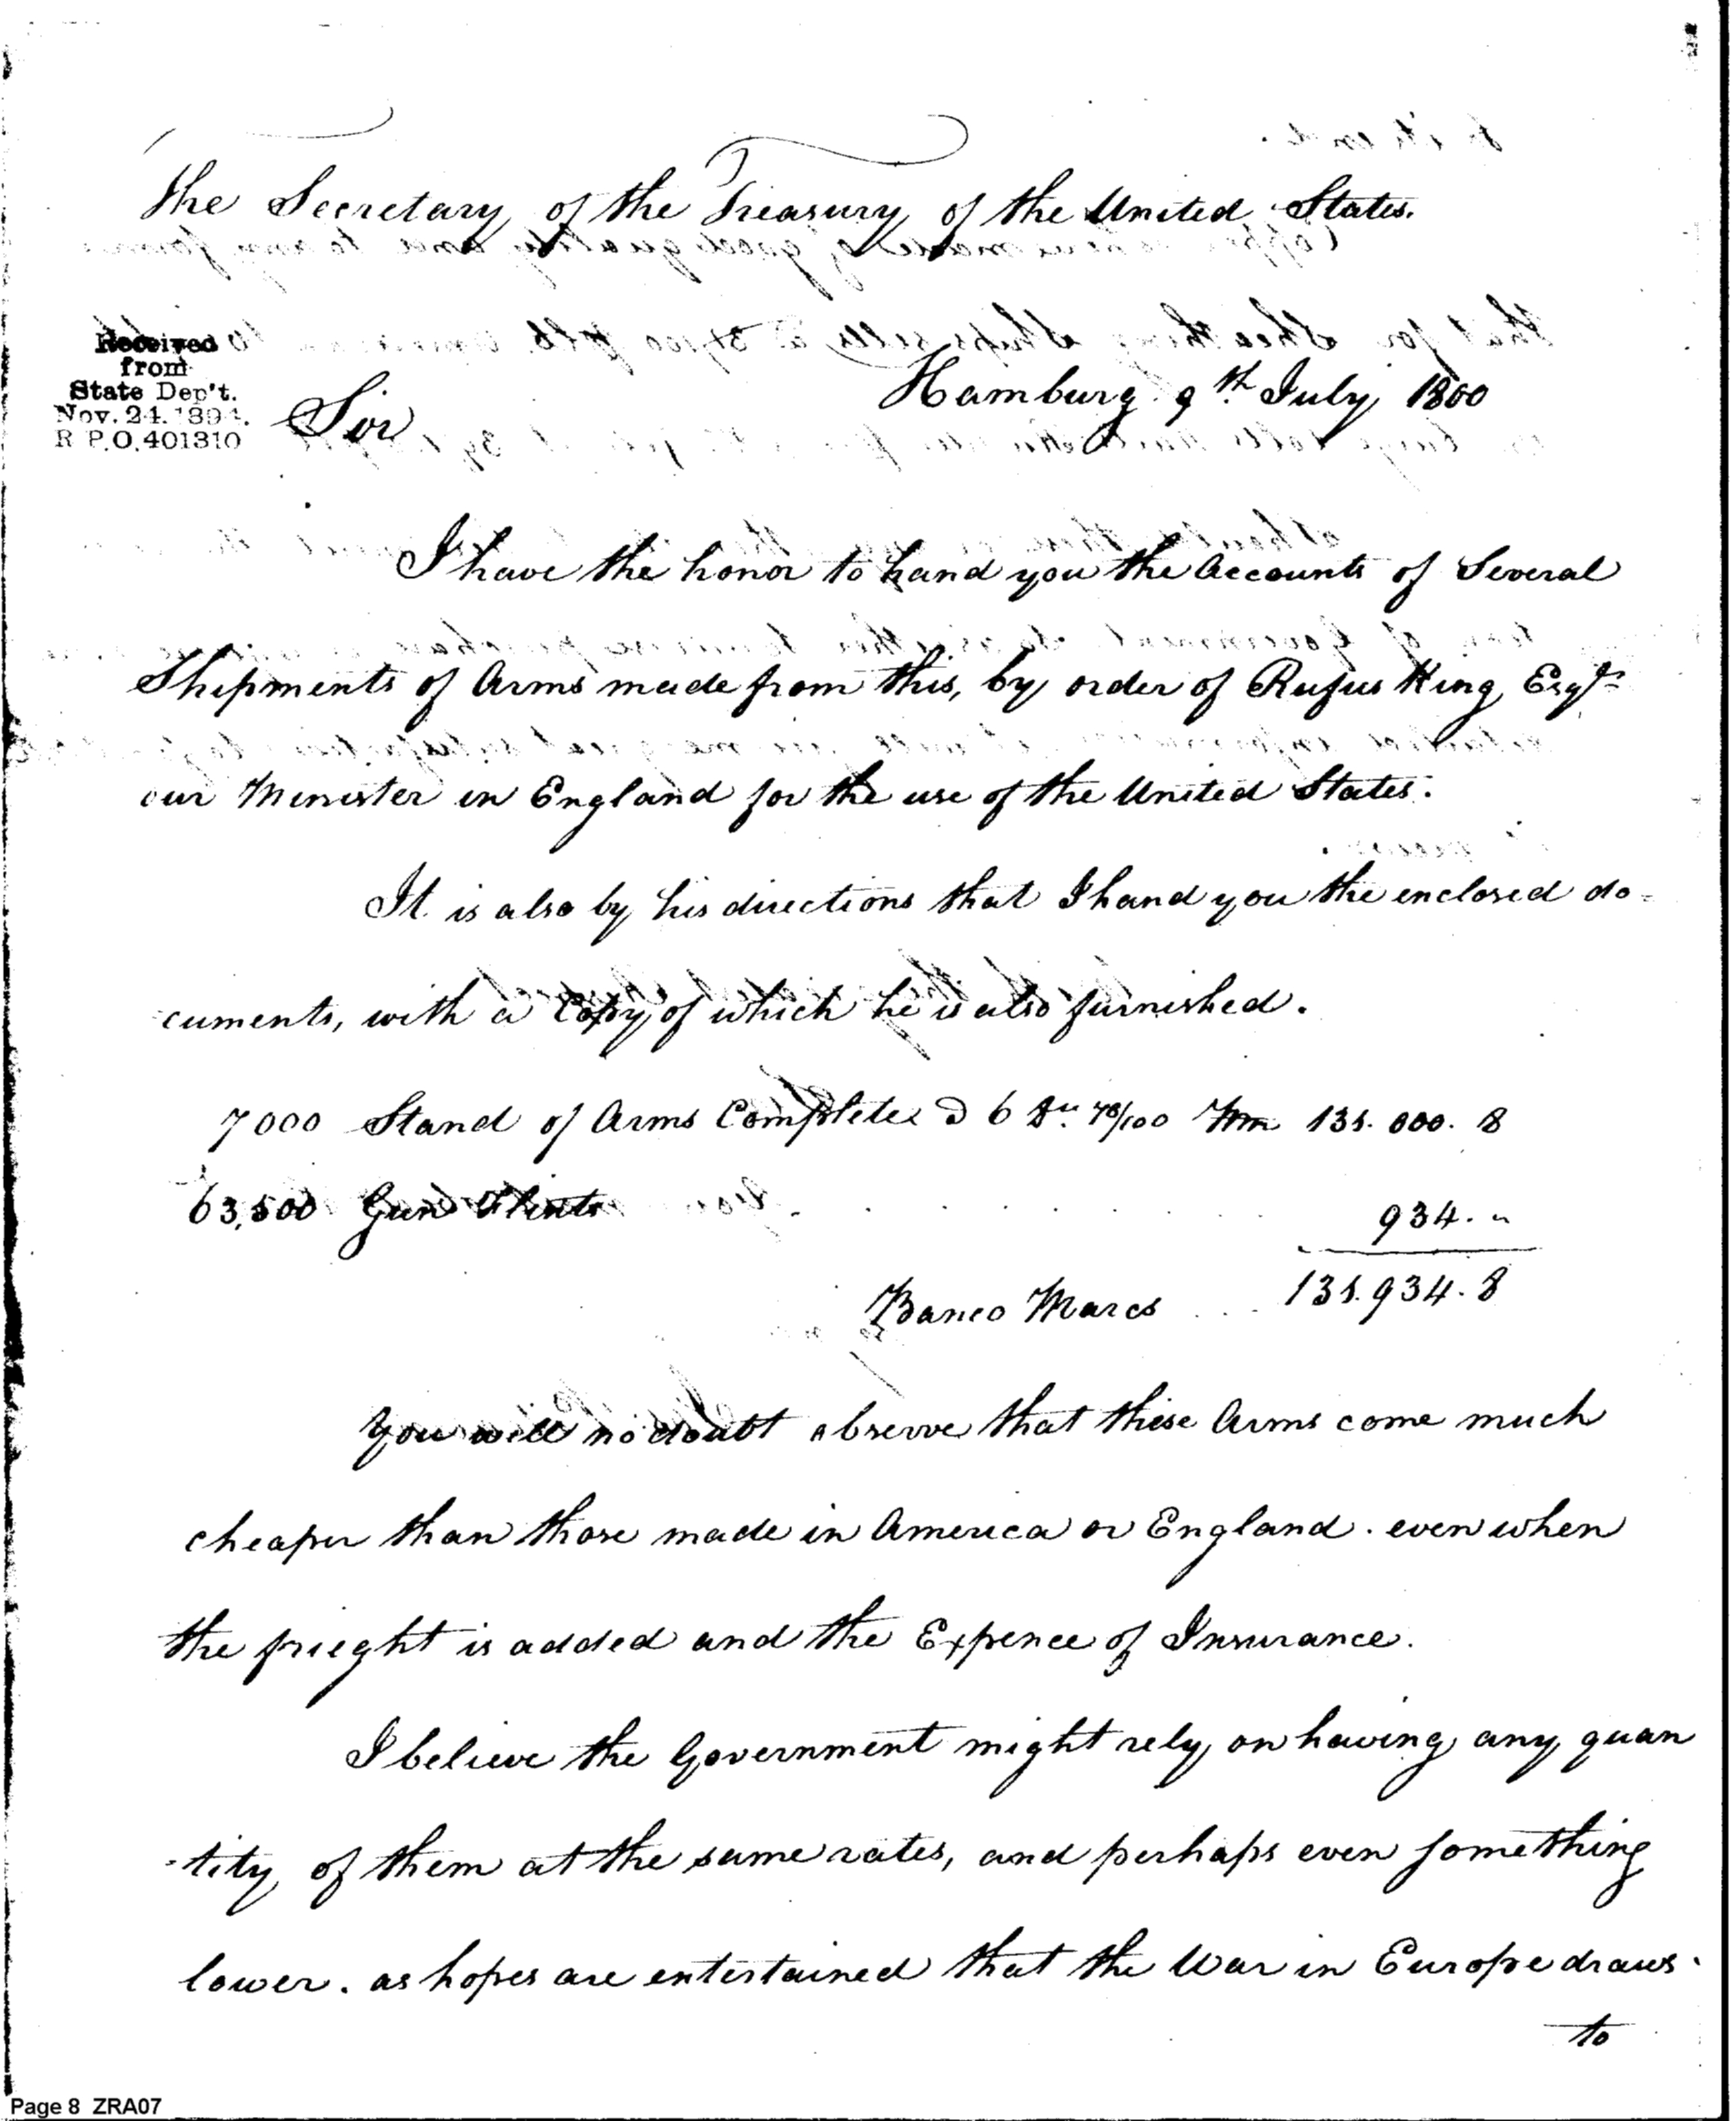 The Secretary of the Treasury of the United States.
Received
from
State Dep't.
Nov. 24. 1894.
R P.O. 401310
Hamburg 9th July 1800
Sir
I have the honor to hand you the Accounts of Several
Shipments of Arms made from this, by order of Rufus King Esqr
our Minister in England for the use of the United States.
It is also by his directions that I hand you the enclosed do=
cuments, with a Copy of which he is also furnished.
7000 Stand of Arms Complete @ 6 78/100 135.000. 8
63,500 Gun Flints . . . . . . . 934. "
Banco Marcs . . . 135.934. 8
You will no doubt observe that these Arms come much
cheaper than those made in America or England. even when
the frieght is added and the Expence of Insurance.
I believe the Government might rely on having any quan
-tity of them at the same rates, and perhaps even something
lower. as hopes are entertained that the War in Europe draws
to
Page 8 ZRA07